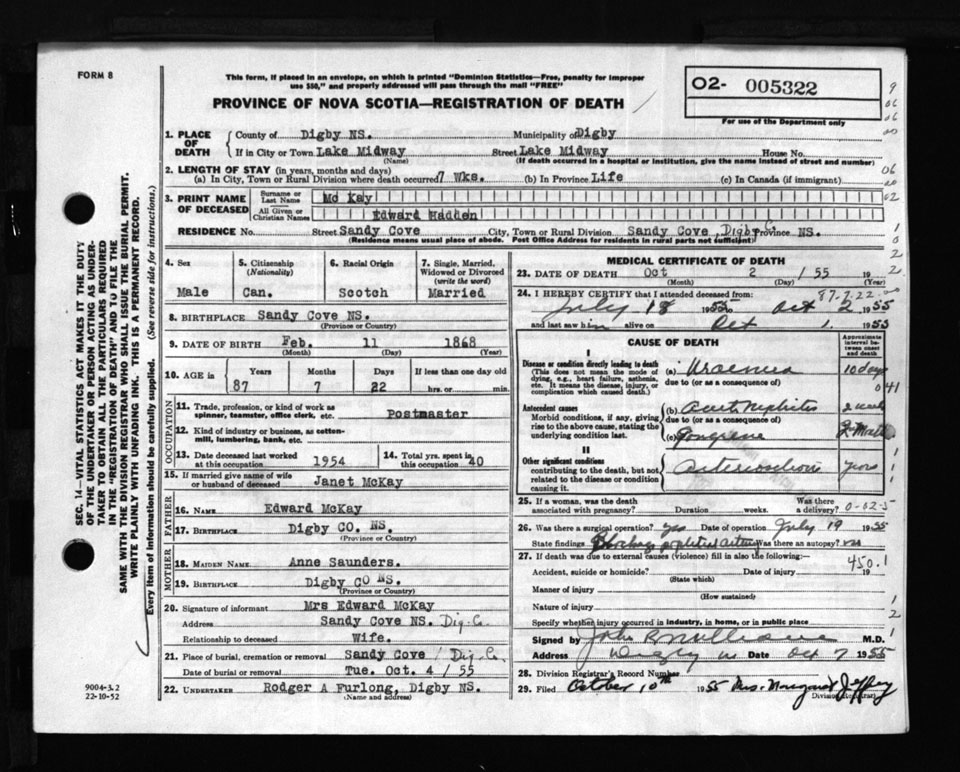 FORM 8
This form, if placed in an envelope, on which is printed "Dominion Statistics—Free, penalty for improper
use $50," and properly addressed will pass through the mail "FREE"
PROVINCE OF NOVA SCOTIA—REGISTRATION OF DEATH
O2- 005322
For use of the Department only
1. PLACE OF DEATH
County of Digby NS. Municipality of Digby
If in City or Town Lake Midway Street Lake Midway House No.
(Name) (If death occurred in a hospital or institution, give the name instead of street and number)
2. LENGTH OF STAY (in years, months and days)
(a) In City, Town or Rural Division where death occurred 7 Wke. (b) In Province Life (c) In Canada (if immigrant)
3. PRINT NAME OF DECEASED
Surname or Last Name Mc Kay
All Given or Christian Names Edward Hadden
RESIDENCE No. Street Sandy Cove City, Town or Rural Division Sandy Cove, Digby Province NS.
(Residence means usual place of abode. Post Office Address for residents in rural parts not sufficient)
4. Sex
Male
5. Citizenship
(Nationality)
Can.
6. Racial Origin
Scotch
7. Single, Married,
Widowed or Divorced
(write the word)
Married
8. BIRTHPLACE Sandy Cove NS.
(Province or Country)
9. DATE OF BIRTH Feb. 11 1868
(Month) (Day) (Year)
10. AGE in Years Months Days If less than one day old
87 7 22 hrs. or min.
OCCUPATION
11. Trade, profession, or kind of work as
spinner, teamster, office clerk, etc. Postmaster
12. Kind of industry or business, as cotton-
mill, lumbering, bank, etc.
13. Date deceased last worked
at this occupation 1954
14. Total yrs. spent in
this occupation 40
15. If married give name of wife
or husband of deceased Janet McKay
FATHER
16. NAME Edward McKay
17. BIRTHPLACE Digby CO. NS.
(Province or Country)
MOTHER
18. MAIDEN NAME Anne Saunders.
19. BIRTHPLACE Digby CO NS.
(Province or Country)
20. Signature of informant Mrs Edward McKay
Address Sandy Cove NS. Dig. Co.
Relationship to deceased Wife.
21. Place of burial, cremation or removal Sandy Cove / Dig. Co.
Date of burial or removal Tue. Oct. 4 / 55
22. UNDERTAKER Rodger A Furlong, Digby NS.
(Name and address)
MEDICAL CERTIFICATE OF DEATH
23. DATE OF DEATH Oct 2 / 55 19
(Month) (Day) (Year)
87-7-22
24. I HEREBY CERTIFY that I attended deceased from:
July 18 1955 to Oct 2 1955
and last saw him alive on Oct 1 1955
CAUSE OF DEATH
Approximate
interval be-
tween onset
and death
I
Disease or condition directly leading to death
(This does not mean the mode of
dying, e.g., heart failure, asthenia,
etc. It means the disease, injury, or
complication which caused death.)
(a) Uraemia 10 days
due to (or as a consequence of)
041
Antecedent causes
Morbid conditions, if any, giving
rise to the above cause, stating the
underlying condition last.
(b) Acute Nephritis 2 weeks
due to (or as a consequence of)
(c) Gangrene
II
Other significant conditions
contributing to the death, but not
related to the disease or condition
causing it.
Arteriosclerosis years
25. If a woman, was the death
associated with pregnancy? Duration weeks. Was there
a delivery?
26. Was there a surgical operation? yes Date of operation July 19 1955
State findings Was there an autopsy?
27. If death was due to external causes (violence) fill in also the following:—
450.1
Accident, suicide or homicide? Date of injury 19
(State which)
Manner of injury
(How sustained)
Nature of injury
Specify whether injury occurred in industry, in home, or in public place
Signed by John R M.D.
Address Digby NS Date Oct 7 1955
28. Division Registrar's Record Number
29. Filed October 10th 1955 Mrs. Margaret Jeffrey
Division (Registrar)
SEC. 14—VITAL STATISTICS ACT MAKES IT THE DUTY
OF THE UNDERTAKER OR PERSON ACTING AS UNDER-
TAKER TO OBTAIN ALL THE PARTICULARS REQUIRED
IN THE "REGISTRATION OF DEATH" AND TO FILE THE
SAME WITH THE DIVISION REGISTRAR WHO SHALL ISSUE THE BURIAL PERMIT.
WRITE PLAINLY WITH UNFADING INK. THIS IS A PERMANENT RECORD.
Every item of information should be carefully supplied. (See reverse side for instructions.)
9004-3.2
22-10-52